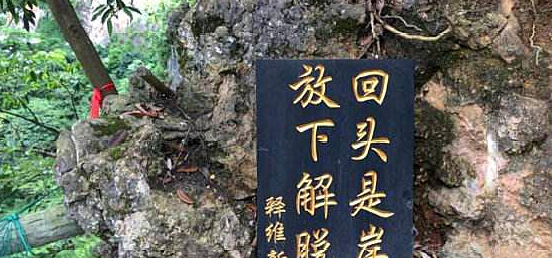 回头是岸
放下解脱
释维新